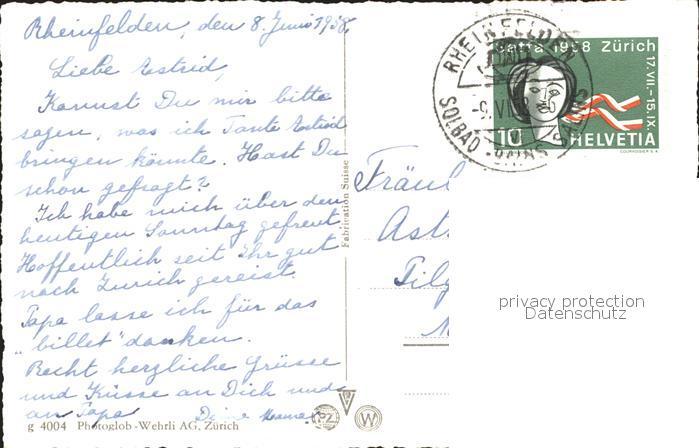 Rheinfelden, den 8. Juni 1958.
Liebe Astrid,
Kannst Du mir bitte
sagen, was ich Tante Astrid
bringen könnte. Hast Du
schon gefragt?
Ich habe mich über den
heutigen Sonntag gefreut
Hoffentlich seit Ihr gut
nach Zürich gereist.
Papa lasse ich für das
"billet" danken.
Recht herzliche Grüsse
und Küsse an Dich und
an Papa
Deine Mama
g 4004 Photoglob-Wehrli AG, Zürich
Fabrication Suisse
PZ
W
RHEINFELDEN
SOLBAD - BAINS SALINS
Saffa 1958 Zürich
17.VII.-15.IX.
10 HELVETIA
COURVOISIER S.A.
Fräul
Ast
Pilg
privacy protection
Datenschutz